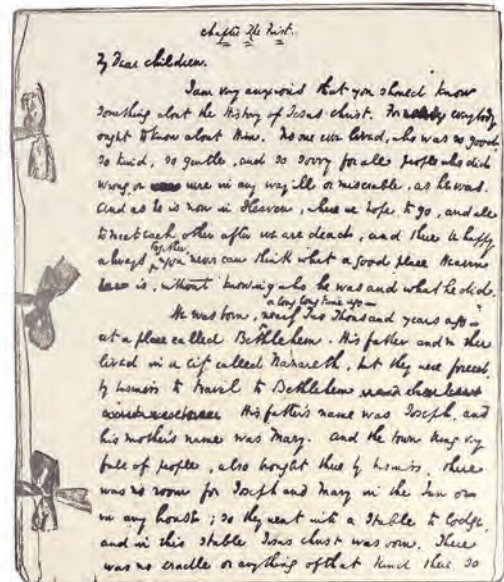 Chapter The First.
My Dear children.
I am very anxious that you should know
something about the History of Jesus Christ. For everybody
ought to know about Him. No one ever lived, who was so good,
so kind, so gentle, and so sorry for all people who did
wrong, or were in any way ill or miserable, as he was.
And as he is now in Heaven, where we hope to go, and all
to meet each other after we are dead, and there be happy
always together, you never can think what a good place Heaven
is, without knowing who he was and what he did.
He was born, a long long time ago — nearly Two Thousand years ago —
at a place called Bethlehem. His father and mother
lived in a city called Nazareth, but they were forced,
by business to travel to Bethlehem
His father's name was Joseph, and
his mother's name was Mary. And the town being very
full of people, also brought there by business, there
was no room for Joseph and Mary in the Inn or
in any house; so they went into a Stable to lodge,
and in this stable Jesus Christ was born. There
was no cradle or anything of that kind there so